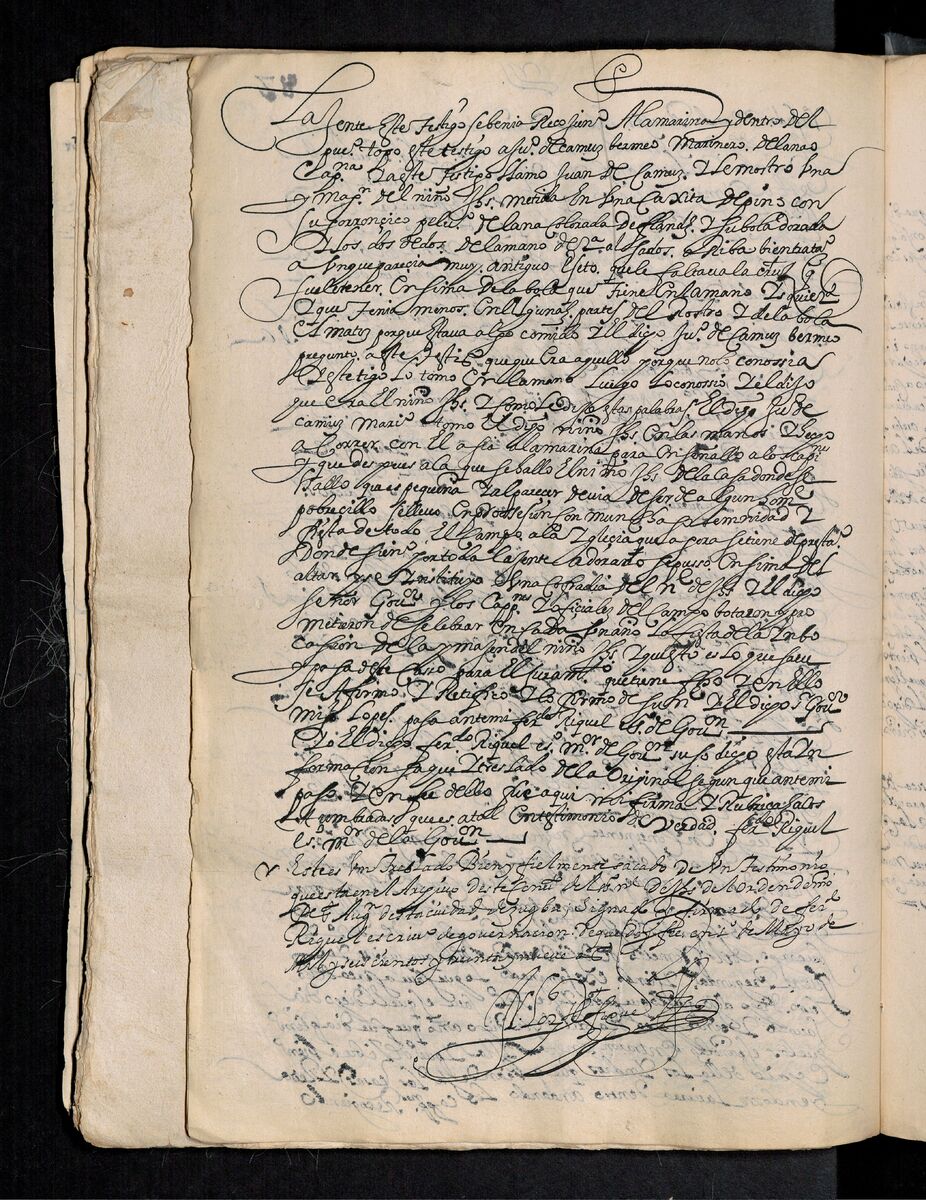 La Jente Este testigo se benia Recojienº A la marina y dentro del
pueº topo este testigo a juº de camuz bermeo Marinero de la nao
Capna Y a este testigo llamo Juan de Camuz Y le mostro Una
Ymagn del niño Jhs metida En Una Caxita de pino con
Su gorronçico de lana Colorada de flandes Y su bola dorada
Y los dos dedos de la mano dea alsados arriba bien tratado
a Unque pareçia muy antiguo Eseto que le faltava la crus q
suele tener Ensima de la bola que tiene En la mano Ysquierda
Y que tenia menos En algunas partes del Rostro Y de la bola
El matiz porque estava algo comido Y El dicho juº de Camuz bermeo
pregunto a este testigo que que Era aquello porque no lo conossia
Y este tigo Lo tomo En la mano Luego lo conossio Y el dijo
que Era El niño Jhs Y como Le dijo estas palabras El dicho juº de
camuz Mari tomo El dicho niño Jhs En las manos Y hecho
a Correr con El asia a la marina para Ensenallo a los Capines
Y que despues a la que se hallo El niño Jhs de la Casa donde se
hallo que es pequena Y al pareçer devia de ser de algun home
pobreçillo se llevo En prosesion con muncha solemnidad Y
fiesta de todo El Campo a la Yglecia que agora se tiene de prestaº
Donde siendº por toda la jente adorado se pusso Ensima del
altar Y se Ynstituyo Una Cofradia del nº de Jhs Y El dicho
señor Gouor Y los Cappnes Y ofiçiales del Campo botaron Y pro
metieron de selebrar En cada Un año La fiesta de la Ynbo
casion de la Ymajen del niño Jhs Y questo es Lo que save
Y pasa deste Caso para El Juramto que tiene fho Y En Ello
Se Afirmo Y Retifico Y lo firmo de su nre Y El dicho sr Gour
Migl Lopes paso ante mi ferdo Riquel esº de Gouon
Yo El dicho ferdo Riquel esº mor de Gouon suso dicho esta In
formaçion saque Y treslado de la Orijinal segun que ante mi
paso Y En fee dello hize aqui mi firma Y Rubrica
acostumbradas ques atal En testimonio de Verdad ferdo Riquel
esº mor de la Gouon
Este es Un treslado Bien y fielmente sacado de Un testimonio
que esta en el Archivo deste conuto del sanº nre de Jhs de la orden de nro
Pe S Augn desta ciudad de zugbu, signado Y firmado de ferdo
Riquel escriuº de gouernacion
Mill y seiscientos y treinta y nueve as